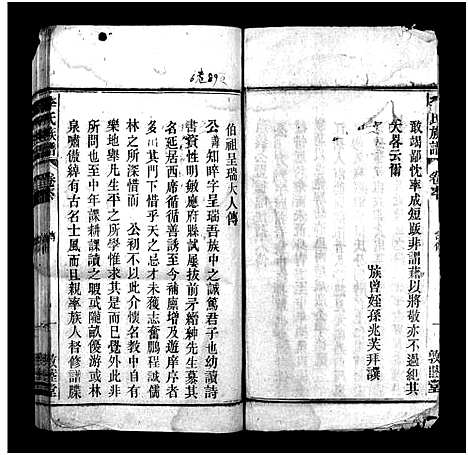 敢竭鄙忱率成短版非謂藉以將敬亦不過紀其
大畧云爾
族曾姪孫兆芙拜譔
伯祖呈瑞大人傳
公諱知睟字呈瑞吾族中之誠篤君子也幼讀詩
書資性明敏應府縣試屢拔前矛縉紳先生慕其
名延居西席循循善誘至今補廩增及遊庠序者
多出其門下惜乎天之忌才未獲志奮鵬程誠儒
林之所深惜也公初不以此介懷名教中自有
樂地舉凡生平之所學惟求其是而已覺外此非
所問也至中年課耕課讀之暇或隴畝優游或林
泉嘯傲綽有古名士風而且親率族人督修譜牒
李氏族譜
卷
敦睦堂